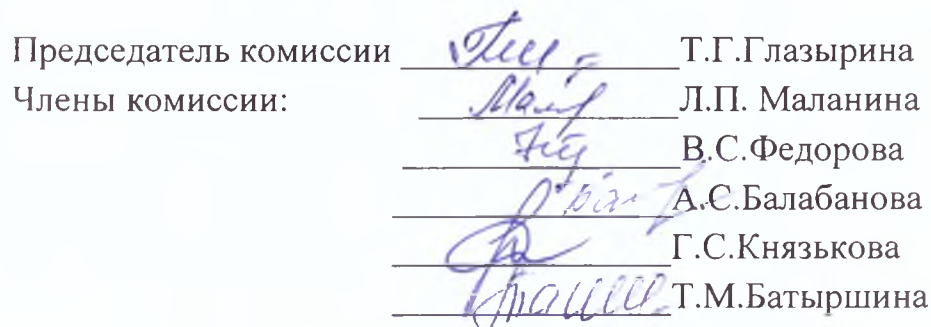 Председатель комиссии Т.Г.Глазырина
Члены комиссии: Л.П. Маланина
В.С.Федорова
А.С.Балабанова
Г.С.Князькова
Т.М.Батыршина